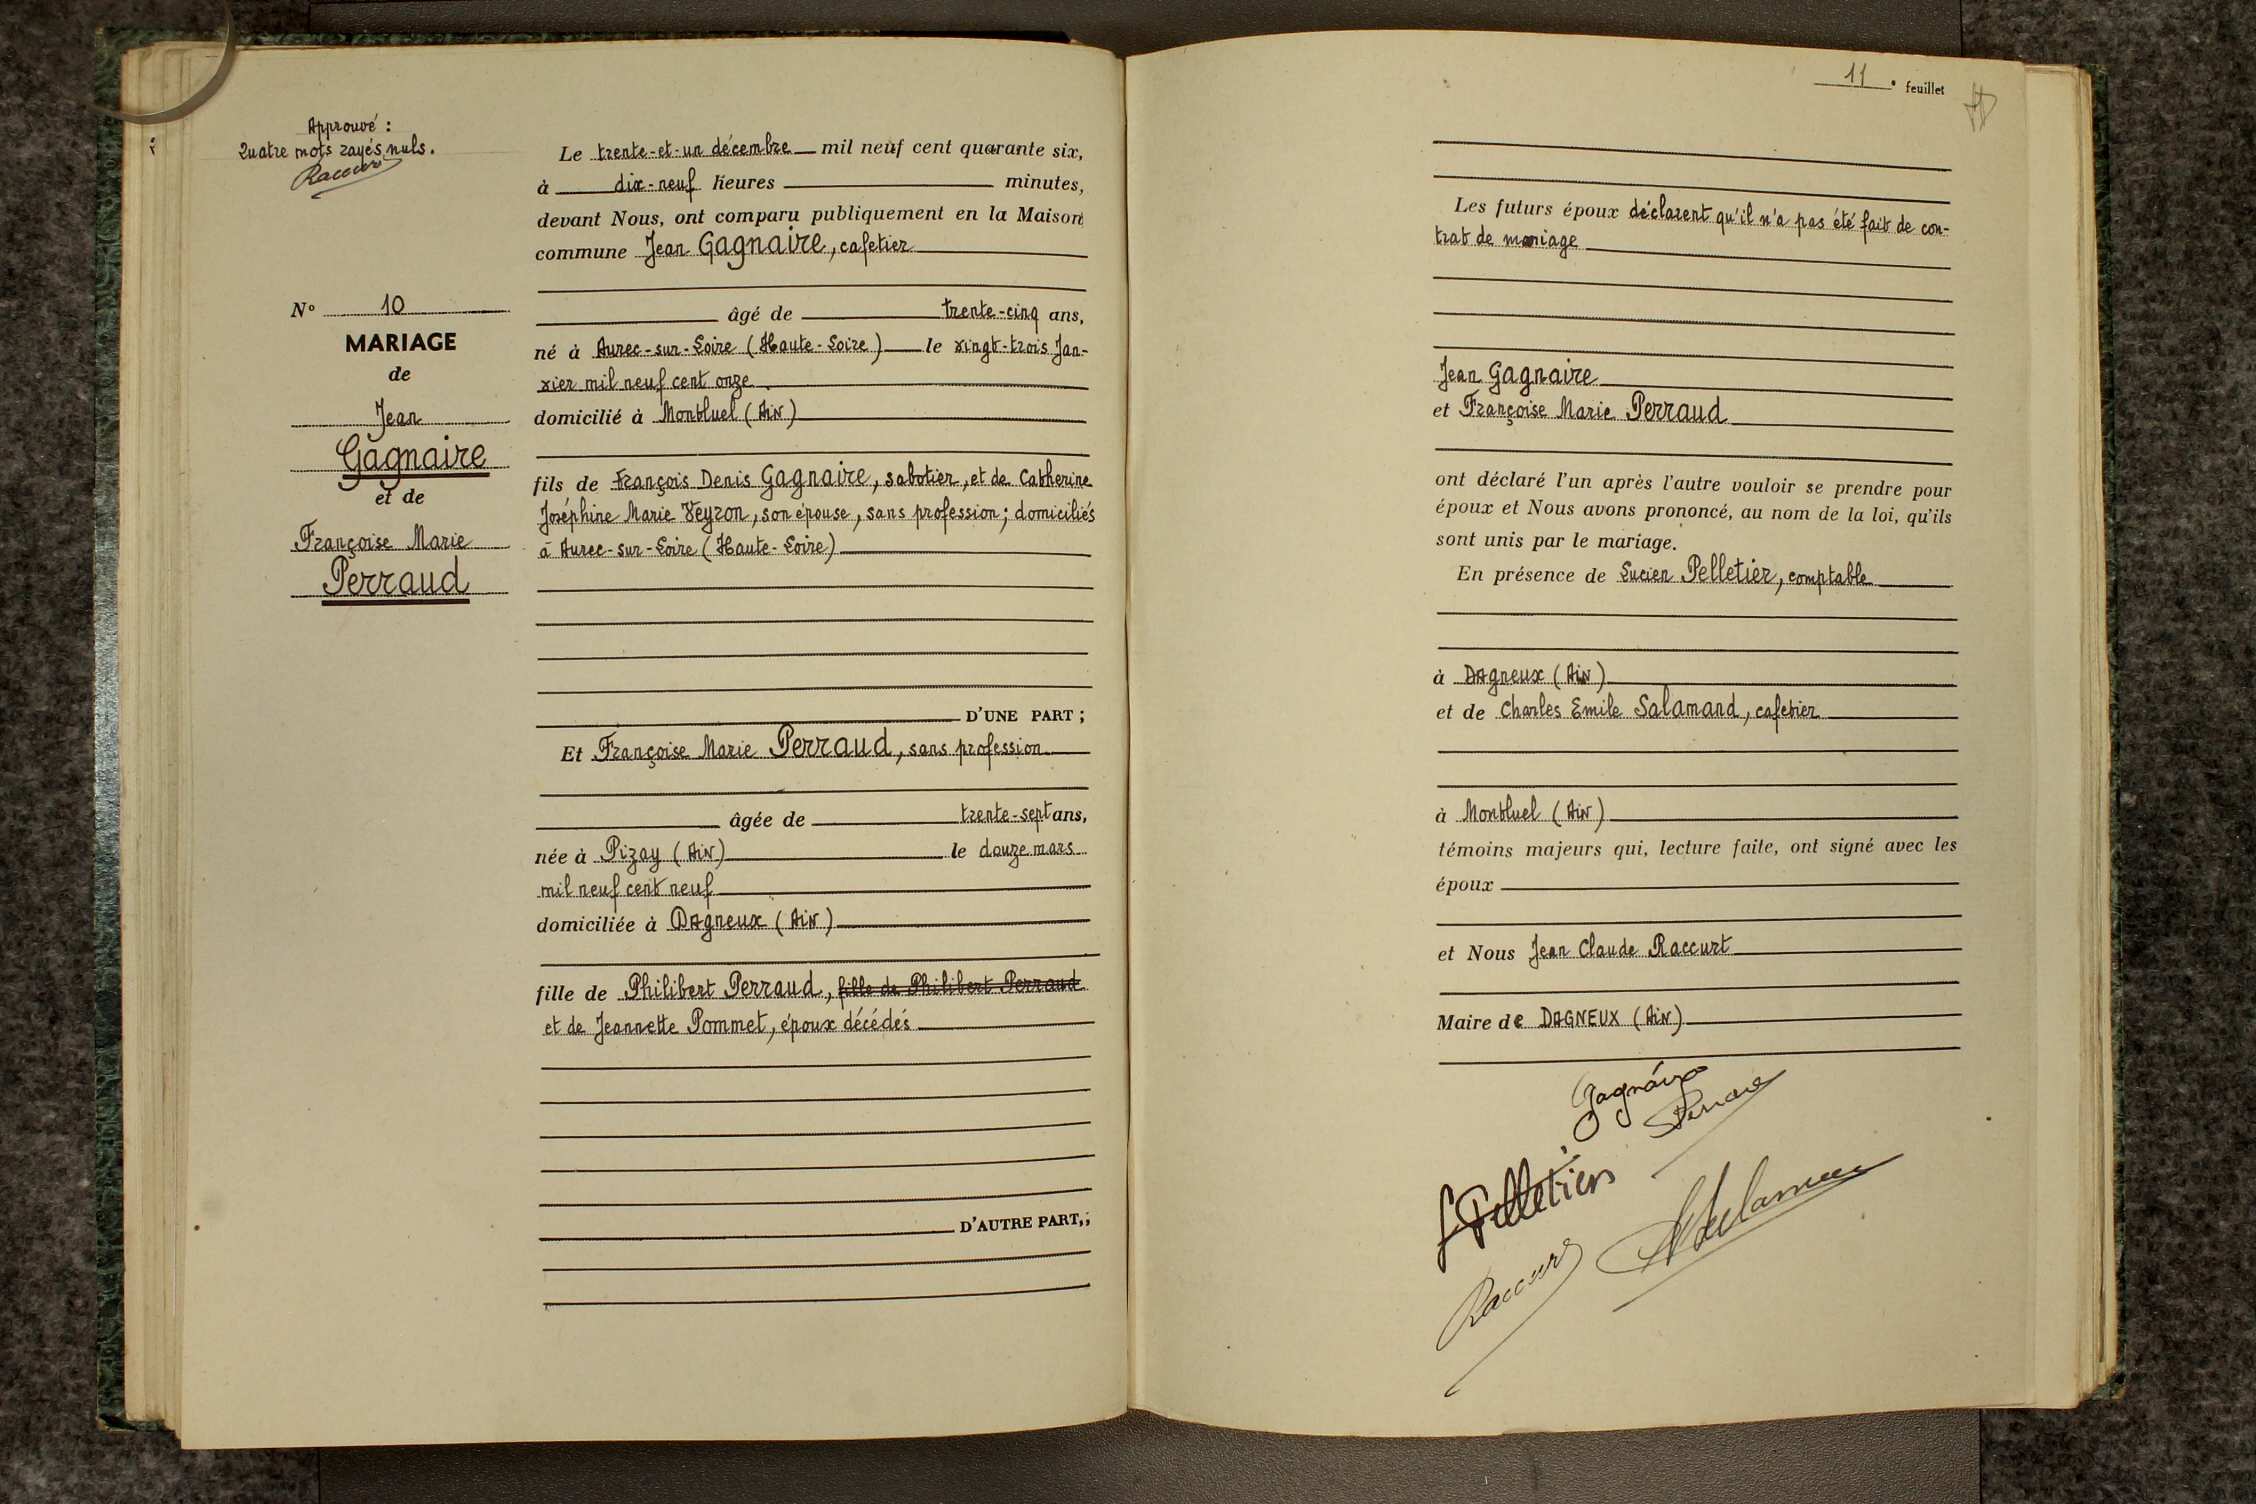 Approuvé :
Quatre mots rayés nuls.
Raccurt
N° 10
MARIAGE
de
Jean
Gagnaire
et de
Françoise Marie
Perraud
Le trente-et-un décembre mil neuf cent quarante six,
à dix-neuf heures minutes,
devant Nous, ont comparu publiquement en la Maison
commune Jean Gagnaire, cafetier
âgé de trente-cinq ans,
né à Aurec-sur-Loire (Haute-Loire) le vingt-trois Jan-
vier mil neuf cent onze
domicilié à Montluel (Ain)
fils de François Denis Gagnaire, sabotier, et de Catherine
Joséphine Marie Veyron, son épouse, sans profession; domiciliés
à Aurec-sur-Loire (Haute-Loire)
D'UNE PART ;
Et Françoise Marie Perraud, sans profession
âgée de trente-sept ans,
née à Pizay (Ain) le douze mars
mil neuf cent neuf
domiciliée à Dagneux (Ain)
fille de Philibert Perraud, fille de Philibert Perraud
et de Jeannette Pommet, époux décédés
D'AUTRE PART,;
11e feuillet
Les futurs époux déclarent qu'il n'a pas été fait de con-
trat de mariage
Jean Gagnaire
et Françoise Marie Perraud
ont déclaré l'un après l'autre vouloir se prendre pour
époux et Nous avons prononcé, au nom de la loi, qu'ils
sont unis par le mariage.
En présence de Lucien Pelletier, comptable
à Dagneux (Ain)
et de Charles Emile Salamand, cafetier
à Montluel (Ain)
témoins majeurs qui, lecture faite, ont signé avec les
époux
et Nous Jean Claude Raccurt
Maire de DAGNEUX (Ain)
Gagnaire
Perraud
L Pelletier
Salamand
Raccurt